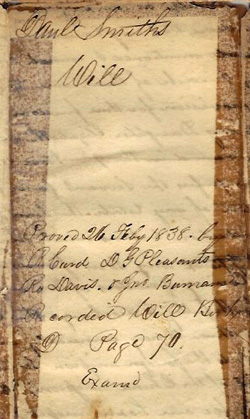 Paul Smiths
Will
Proved 26 Feby 1838. by
R Curd D G Pleasants
Ro Davis. & Jno
Recorded Will Book
Page 70.
Examd